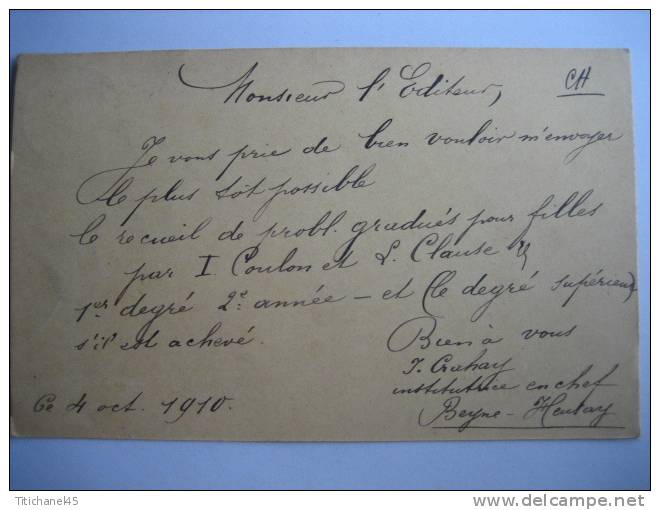 CH
Monsieur l'Editeur,
Je vous prie de bien vouloir m'envoyer
le plus tôt possible
le recueil de probl. gradués pour filles
par I. Coulon et L. Clause
1er degré 2e année – et le degré supérieur
s'il est achevé.
Bien à vous
J. Crahay
institutrice en chef
Ce 4 oct. 1910.
Beyne-Heusay
Titichane45
delcampe.net